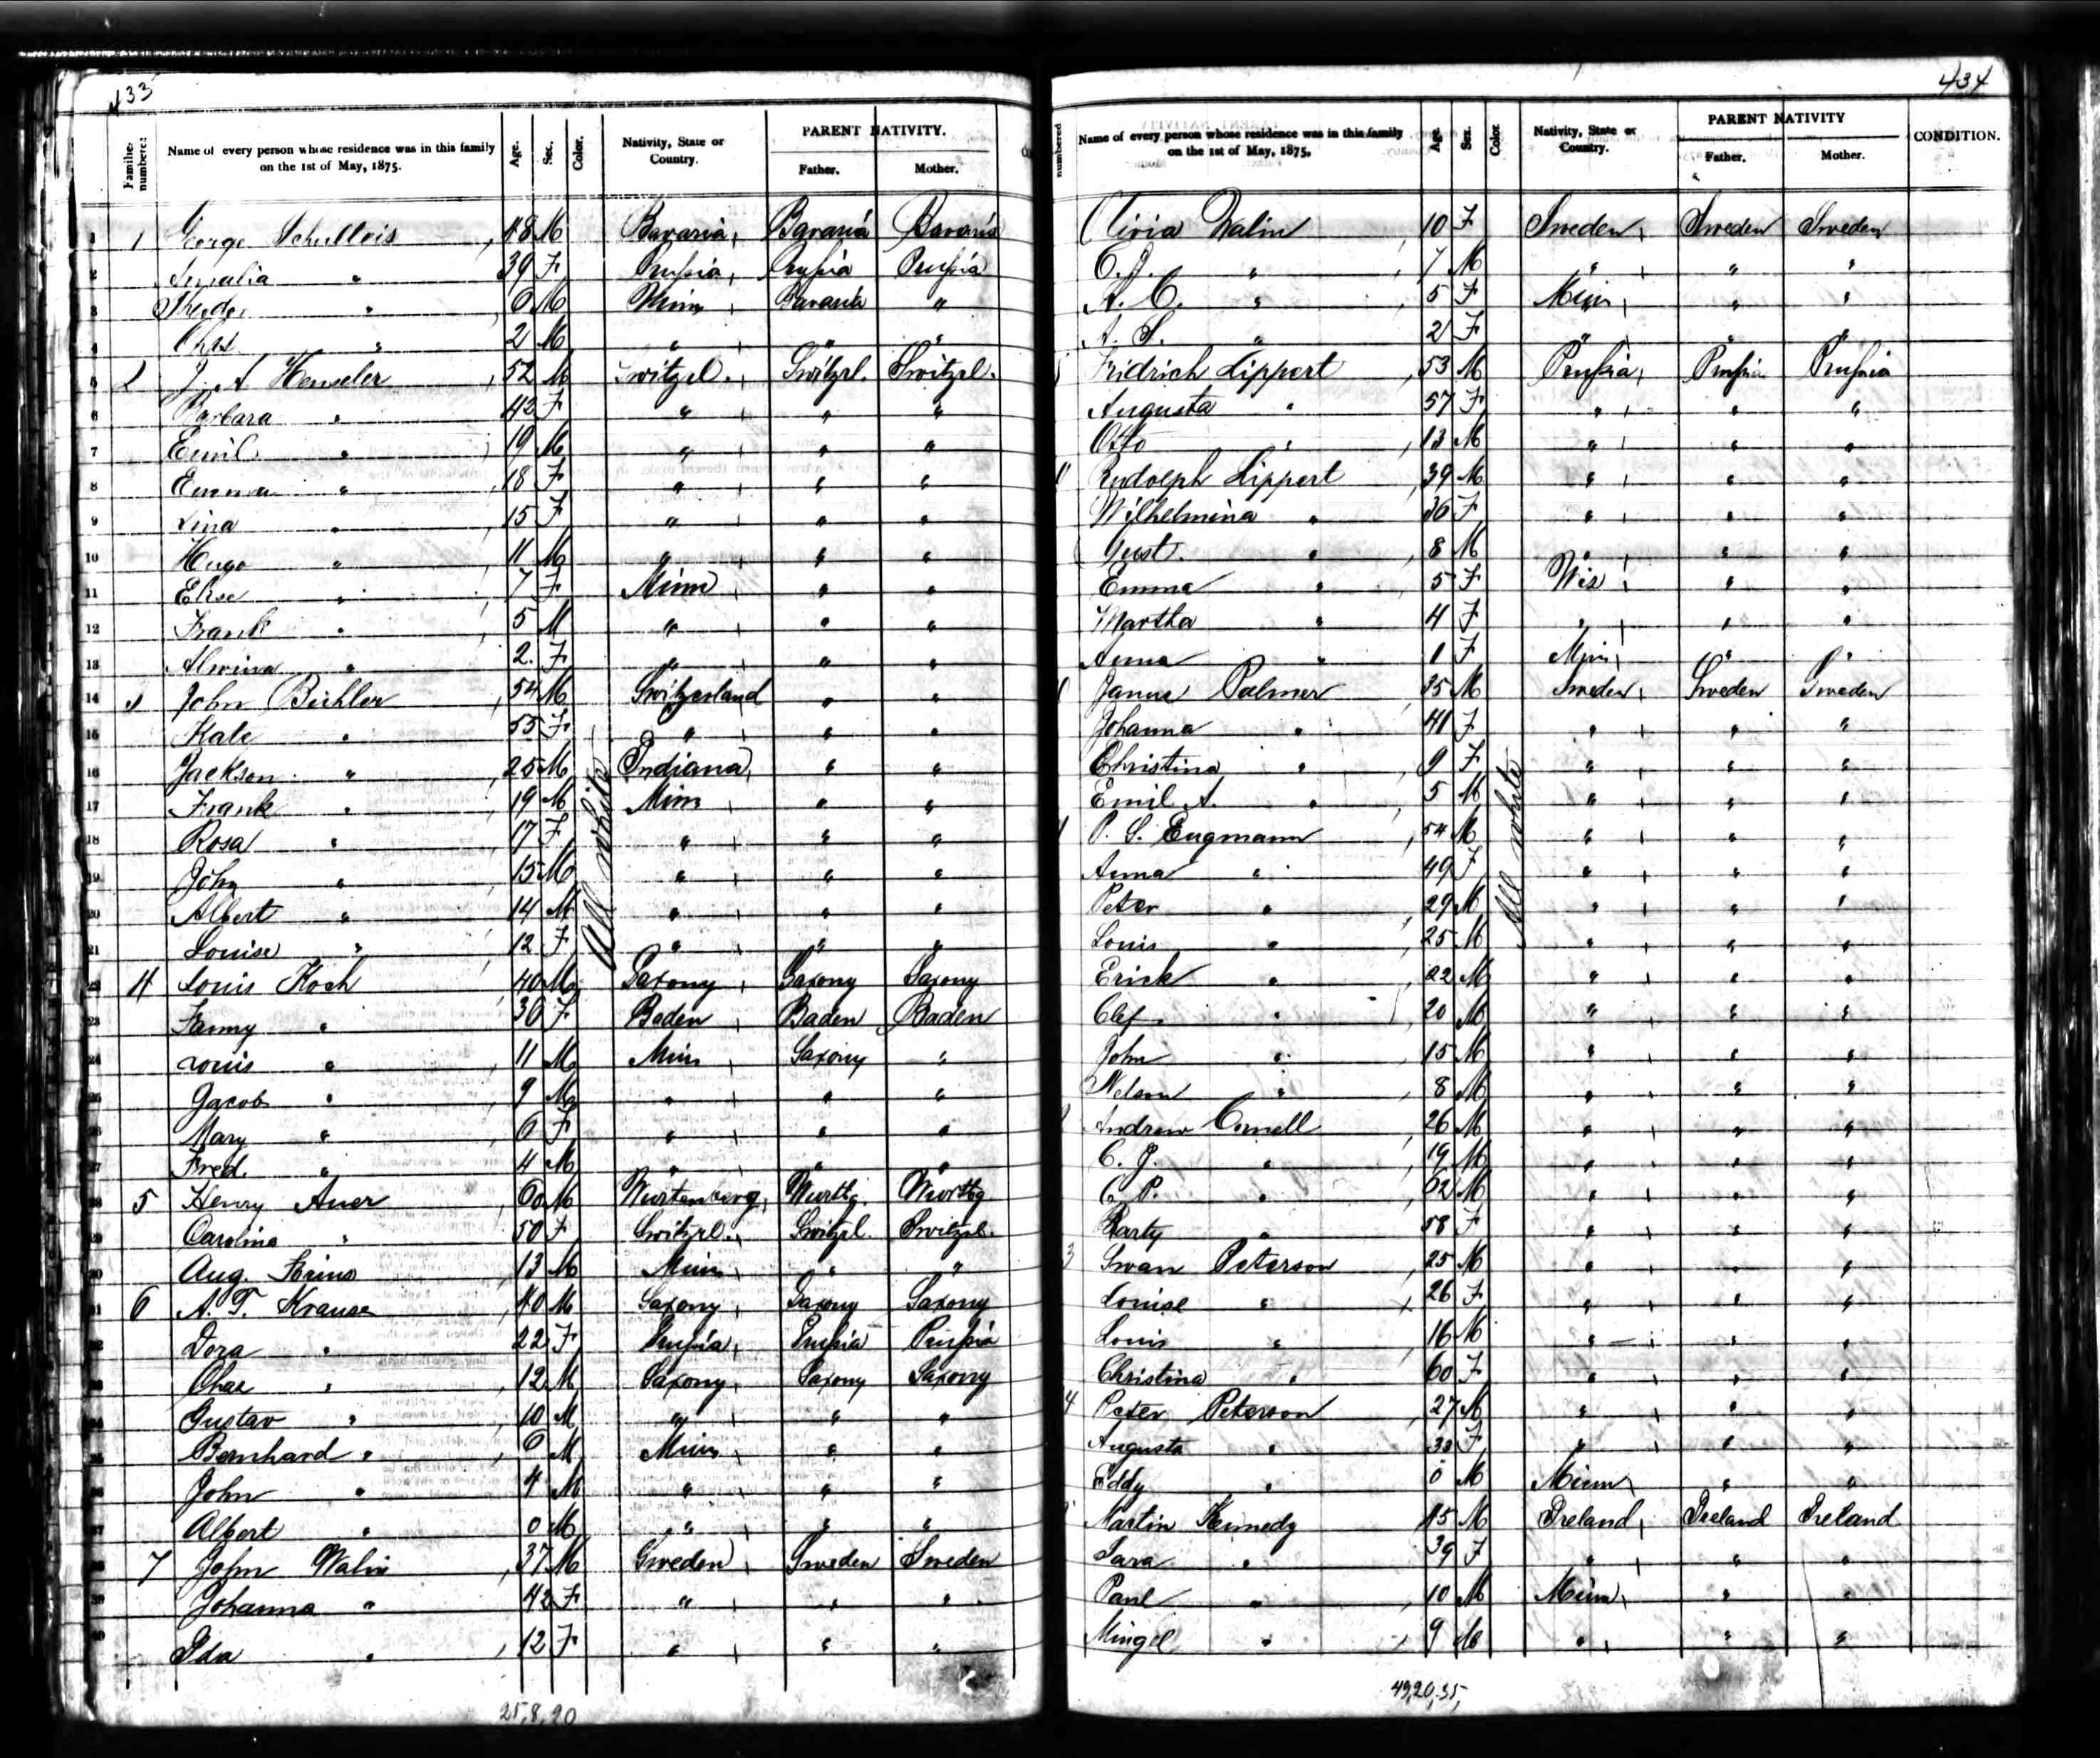 433
Families numbered
Name of every person whose residence was in this family on the 1st of May, 1875.
Age.
Sex.
Color.
Nativity, State or Country.
PARENT NATIVITY.
Father.
Mother.
1 1 George 48 M Bavaria Bavaria Bavaria
2 Amalia " 39 F Prussia Prussia Prussia
3 " 6 M Minn Bavaria "
4 Chas " 2 M " " "
5 2 J. A Henseler 52 M Switzl. Switzl. Switzl.
6 Barbara " 42 F " " "
7 Emil " 19 M " " "
8 Emma " 18 F " " "
9 Lina " 15 F " " "
10 Hugo " 11 M " " "
11 Elise " 7 F Minn " "
12 Frank " 5 M " " "
13 Alwina " 2 F " " "
14 3 John Bichler 54 M Switzerland " "
15 Kate " 55 F " " "
16 Jackson " 25 M Indiana " "
17 Frank " 19 M Minn " "
18 Rosa " 17 F " " "
19 John " 15 M " " "
20 Albert " 14 M " " "
21 Louise " 12 F " " "
22 4 Louis Koch 40 M Saxony Saxony Saxony
23 Fanny " 36 F Baden Baden Baden
24 Louis " 11 M Minn Saxony "
25 Jacob " 9 M " " "
26 Mary " 6 F " " "
27 Fred. " 4 M " " "
28 5 Henry Auer 60 M Wurtenberg Wurtbg. Wurtbg
29 Carolina " 50 F Switzl. Switzl. Switzl.
30 Aug. 13 M Minn " "
31 6 A. T. Krause 40 M Saxony Saxony Saxony
32 Dora " 22 F Prussia Prussia Prussia
33 Chas " 12 M Saxony Saxony Saxony
34 Gustav " 10 M " " "
35 Bernhard " 6 M Minn " "
36 John " 4 M " " "
37 Albert " 0 M " " "
38 7 John Walin 37 M Sweden Sweden Sweden
39 Johanna " 42 F " " "
40 Ida " 12 F " " "
All white
25, 8, 20
434
numbered
Name of every person whose residence was in this family on the 1st of May, 1875.
Age.
Sex.
Color
Nativity, State or Country.
PARENT NATIVITY
Father.
Mother.
CONDITION.
Walin 10 F Sweden Sweden Sweden
C. J. " 7 M " " "
A. C. " 5 F Minn " "
A. S. " 2 F " " "
Fridrich Lippert 53 M Prussia Prussia Prussia
Augusta " 57 F " " "
Otto " 13 M " " "
Rudolph Lippert 39 M " " "
Wilhelmina " 36 F " " "
Gust. " 8 M " " "
Emma " 5 F Wis " "
Martha " 4 F " " "
Anna " 1 F Minn " "
Palmer 35 M Sweden Sweden Sweden
Johanna " 41 F " " "
Christina " 9 F " " "
Emil A. " 5 M " " "
P. S. Eugmann 54 M " " "
Anna " 49 F " " "
Peter " 29 M " " "
Louis " 25 M " " "
Erick " 22 M " " "
" 20 M " " "
John " 15 M " " "
Nelson " 8 M " " "
Andrew 26 M " " "
C. J. " 19 M " " "
C. P. " 62 M " " "
" 58 F " " "
3 Swan Peterson 25 M " " "
Louise " 26 F " " "
Louis " 16 M " " "
Christina " 60 F " " "
4 Peter Peterson 27 M " " "
Augusta " F " " "
Eddy " 0 M Minn " "
Martin Kennedy 45 M Ireland Ireland Ireland
Sara " 39 F " " "
Paul " 10 M Minn " "
" 9 M " " "
All white
49, 20, 35,